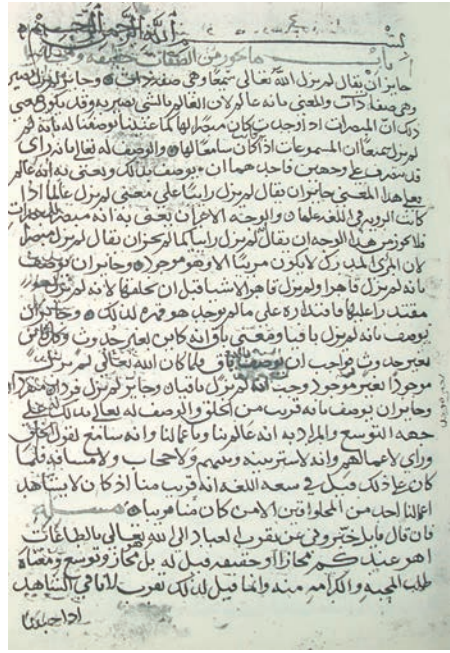 بسم الله الرحمن الرحيم
باب ما يجوز من الصفات حقيقة ومجازا
جائز ان يقال لم يزل الله تعالى سميعا وهي صفة ذات وجائز لم يزل بصير
وهي صفة ذات والمعنى بانه عالم لان العالم بالشي بصير به وقد يكون معنى
ذلك ان المبصرات اذا وجدت كان مبصرا لها كما عنينا بوصفنا له بانه لم
لم يزل سميعا ان المسموعات اذا كان سامعا لها والوصف له تعالى بانه راى
قد ينصرف على وجهين فاحدهما ان يوصف بذلك ويعنى به انه عالم
بها هذا المعنى جائز ان يقال لم يزل رائيا على معنى لم يزل عالما اذا
كانت الروية في اللغة علما والوجه الاخر ان يعنى به انه مبصر للمبصرات
فلا يجوز من هذا الوجه ان يقال لم يزل رائيا كما لم يجز ان يقال لم يزل مبصرا
لان المرئ المدرك لا يكون مرئيا الا وهو موجود وجائز ان يوصف
بانه لم يزل قاهرا ولم يزل قاهرا الاشيا قبل ان يخلقها لانه لم يزل
مقتدرا عليها فاقتداره على ما لم يوجد هو قهره لذلك وجائز ان
يوصف بانه لم يزل باقيا ومعنى باق انه كائن بغير حدوث وكل كائن
بغير حدوث فواجب ان يوصف باق فلما كان الله تعالى لم يزل
موجودا بغير موجود وجب انه لم يزل باقيا وجائز لم يزل فردا
وجائز ان يوصف بانه قريب من الخلق والوصف له تعالى بذلك على
جهة التوسع والمراد به انه عالم بنا وباعمالنا وانه سامع لقول الخلق
وراى لاعمالهم وانه لا ستر بينه وبينهم ولا حجاب ولا مسافة فلما
كان على ذلك قيل في سعة اللغة انه قريب منا اذ كان لا يشاهد
اعمالنا احد من المخلوقين الا من كان منا قريبا مسئلة
فان قال قايل خبروني عن تقرب العباد الى الله تعالى بالطاعات
اهو عندكم مجازا او حقيقة قيل له بل مجاز وتوسع ومعناه
طلب المحبة والكرامة منه وانما قيل لذلك تقرب لانا في الشاهد
اذا